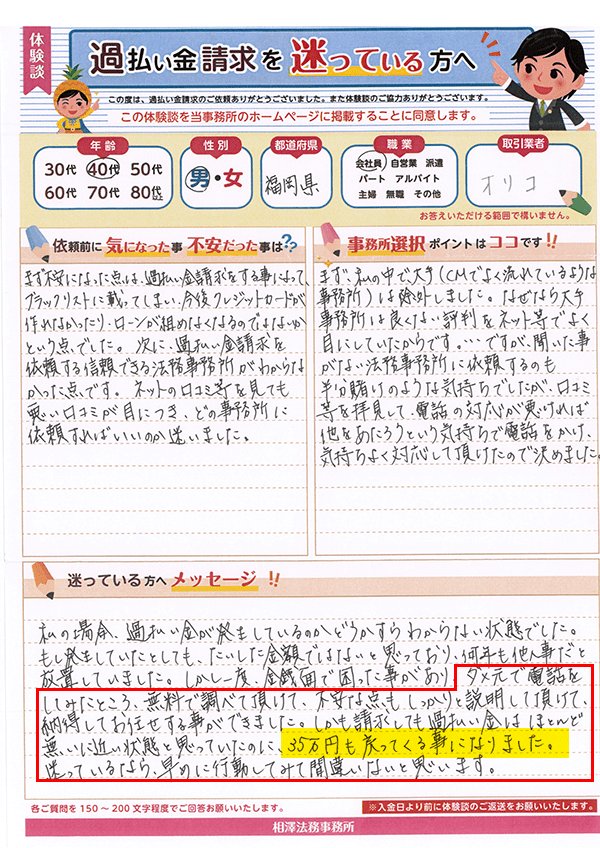 体験談
過払い金請求を迷っている方へ
この度は、過払い金請求のご依頼ありがとうございました。また体験談のご協力ありがとうございます。
この体験談を当事務所のホームページに掲載することに同意します。
年齢
30代 40代 50代
60代 70代 80代以上
性別
男・女
都道府県
福岡県
職業
会社員 自営業 派遣
パート アルバイト
主婦 無職 その他
取引業者
オリコ
お答えいただける範囲で構いません。
依頼前に気になった事 不安だった事は??
まず不安になった点は、過払い金請求をする事によって、
ブラックリストに載ってしまい、今後クレジットカードが
作れなかったり、ローンが組めなくなるのではないか
という点でした。次に、過払い金請求を
依頼する信頼できる法務事務所がわからな
かった点です。ネットの口コミ等を見ても
悪い口コミが目につき、どの事務所に
依頼すればいいのか迷いました。
事務所選択ポイントはココです!!
まず、私の中で大手(CMでよく流れているような
事務所)は除外しました。なぜなら大手
事務所は良くない評判をネット等でよく
目にしていたからです。…ですが、聞いた事
がない法務事務所に依頼するのも
半分賭けのような気持ちでしたが、口コミ
等を拝見して、電話の対応が悪ければ
他をあたろうという気持ちで電話をかけ、
気持ちよく対応して頂けたので決めました。
迷っている方へメッセージ!!
私の場合、過払い金が発生しているのかどうかすらわからない状態でした。
もし発生していたとしても、たいした金額ではないと思っており、何年も他人事だと
放置していました。しかし一度、金銭面で困った事があり、ダメ元で電話を
してみたところ、無料で調べて頂けて、不安な点もしっかりと説明して頂けて、
納得してお任せする事ができました。しかも請求しても過払い金はほとんど
無いに近い状態と思っていたのに、35万円も戻ってくる事になりました。
迷っているなら、早めに行動してみて間違いないと思います。
各ご質問を150～200文字程度でご回答お願いいたします。
※入金日より前に体験談のご返送をお願いいたします。
相澤法務事務所